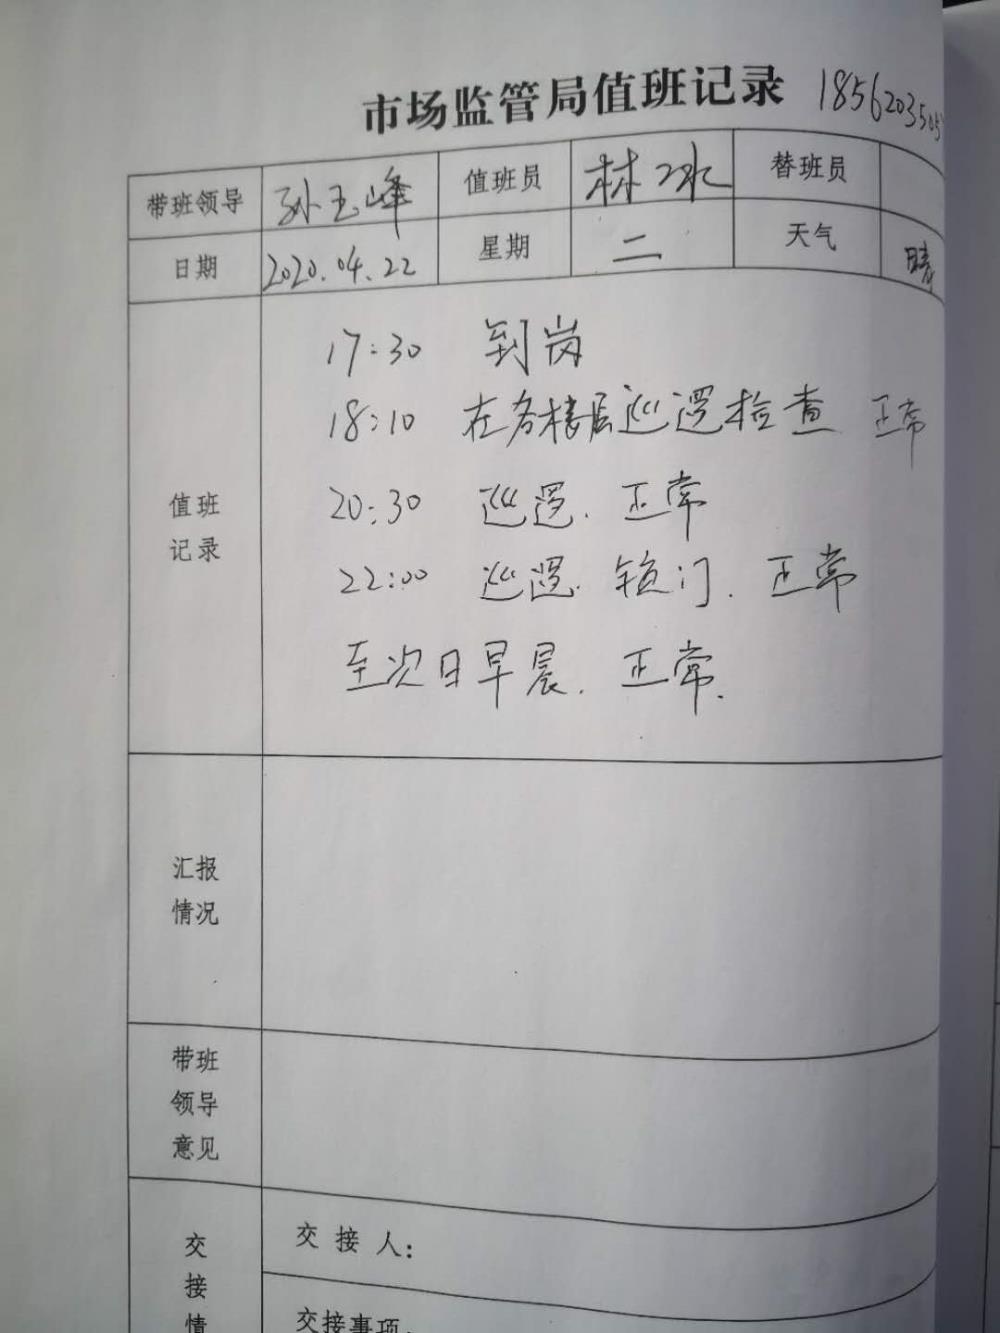 市场监管局值班记录 1856203505
带班领导 孙玉峰 值班员 林冰 替班员
日期 2020.04.22 星期 二 天气 晴
值班记录
17:30 到岗
18:10 在各楼层巡逻检查 正常
20:30 巡逻. 正常
22:00 巡逻. 锁门. 正常
至次日早晨. 正常.
汇报情况
带班领导意见
交接情
交接人:
交接事项: